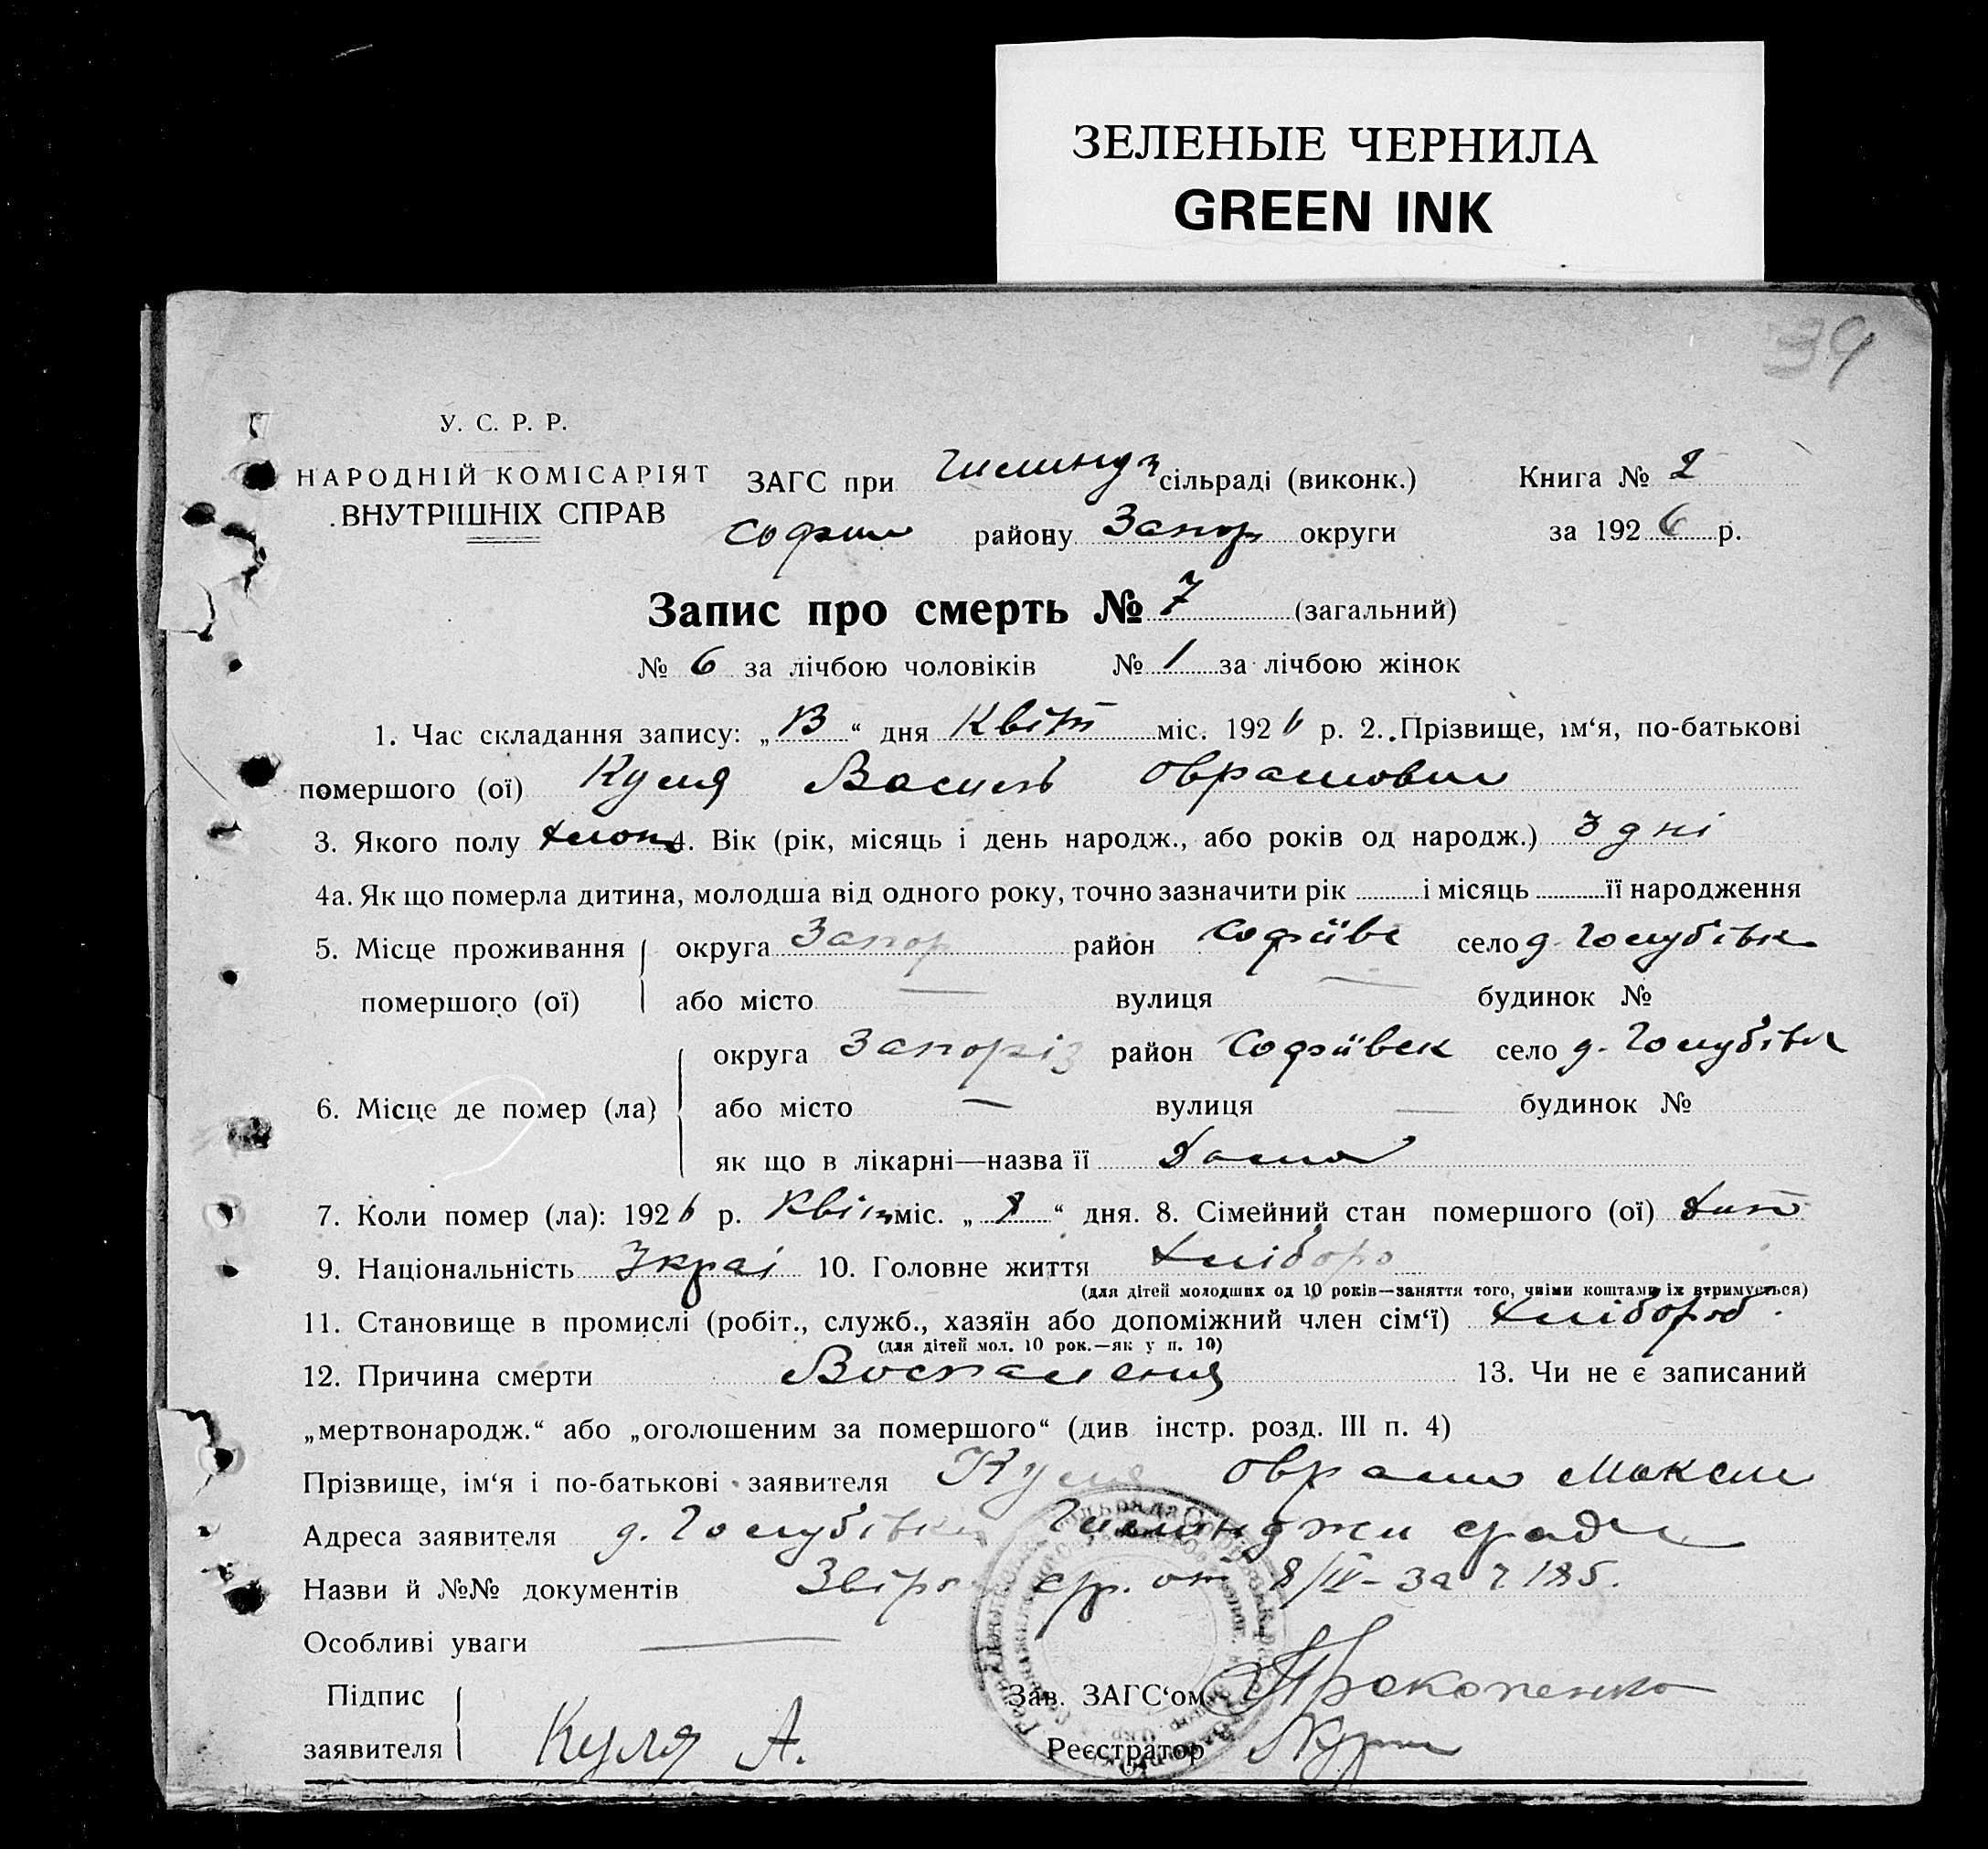 ЗЕЛЕНЫЕ ЧЕРНИЛА
GREEN INK
39
У. С. Р. Р.
НАРОДНІЙ КОМІСАРІЯТ
ВНУТРІШНІХ СПРАВ
ЗАГС при сільраді (виконк.) Книга № 2
району Запор округи за 1926 р.
Запис про смерть № 7 (загальний)
№ 6 за лічбою чоловіків № 1 за лічбою жінок
1. Час складання запису: „ “ дня Квіт міс. 1926 р. 2. Прізвище, ім‘я, по-батькові
помершого (ої) Куля Василь Оврамович
3. Якого полу хлоп 4. Вік (рік, місяць і день народж., або років од народж.) 3 дні
4а. Як що померла дитина, молодша від одного року, точно зазначити рік і місяць її народження
5. Місце проживання округа Запор район Софіївс село д. Голубівк
помершого (ої) або місто — вулиця — будинок №
округа Запоріз район Софіївск село д. Голубівк
6. Місце де помер (ла) або місто — вулиця — будинок №
як що в лікарні—назва її Дома
7. Коли помер (ла): 1926 р. Квіт міс. „ 8 “ дня. 8. Сімейний стан помершого (ої) дит
9. Національність Украї 10. Головне життя хлібороб
(для дітей молодших од 10 років—заняття того, чиїми коштами їх втримується)
11. Становище в промислі (робіт., служб., хазяїн або допоміжний член сім‘ї) хлібороб
(для дітей мол. 10 рок.—як у п. 10)
12. Причина смерти Воспаления 13. Чи не є записаний
„мертвонародж.“ або „оголошеним за помершого“ (див інстр. розд. III п. 4)
Прізвище, ім‘я і по-батькові заявителя Куля Оврам Максим
Адреса заявителя д. Голубівка
Назви й №№ документів от 8/IV - за ч 185.
Особливі уваги —
Підпис
заявителя Куля А.
Зав. ЗАГС‘ом Прокопенко
Реєстратор